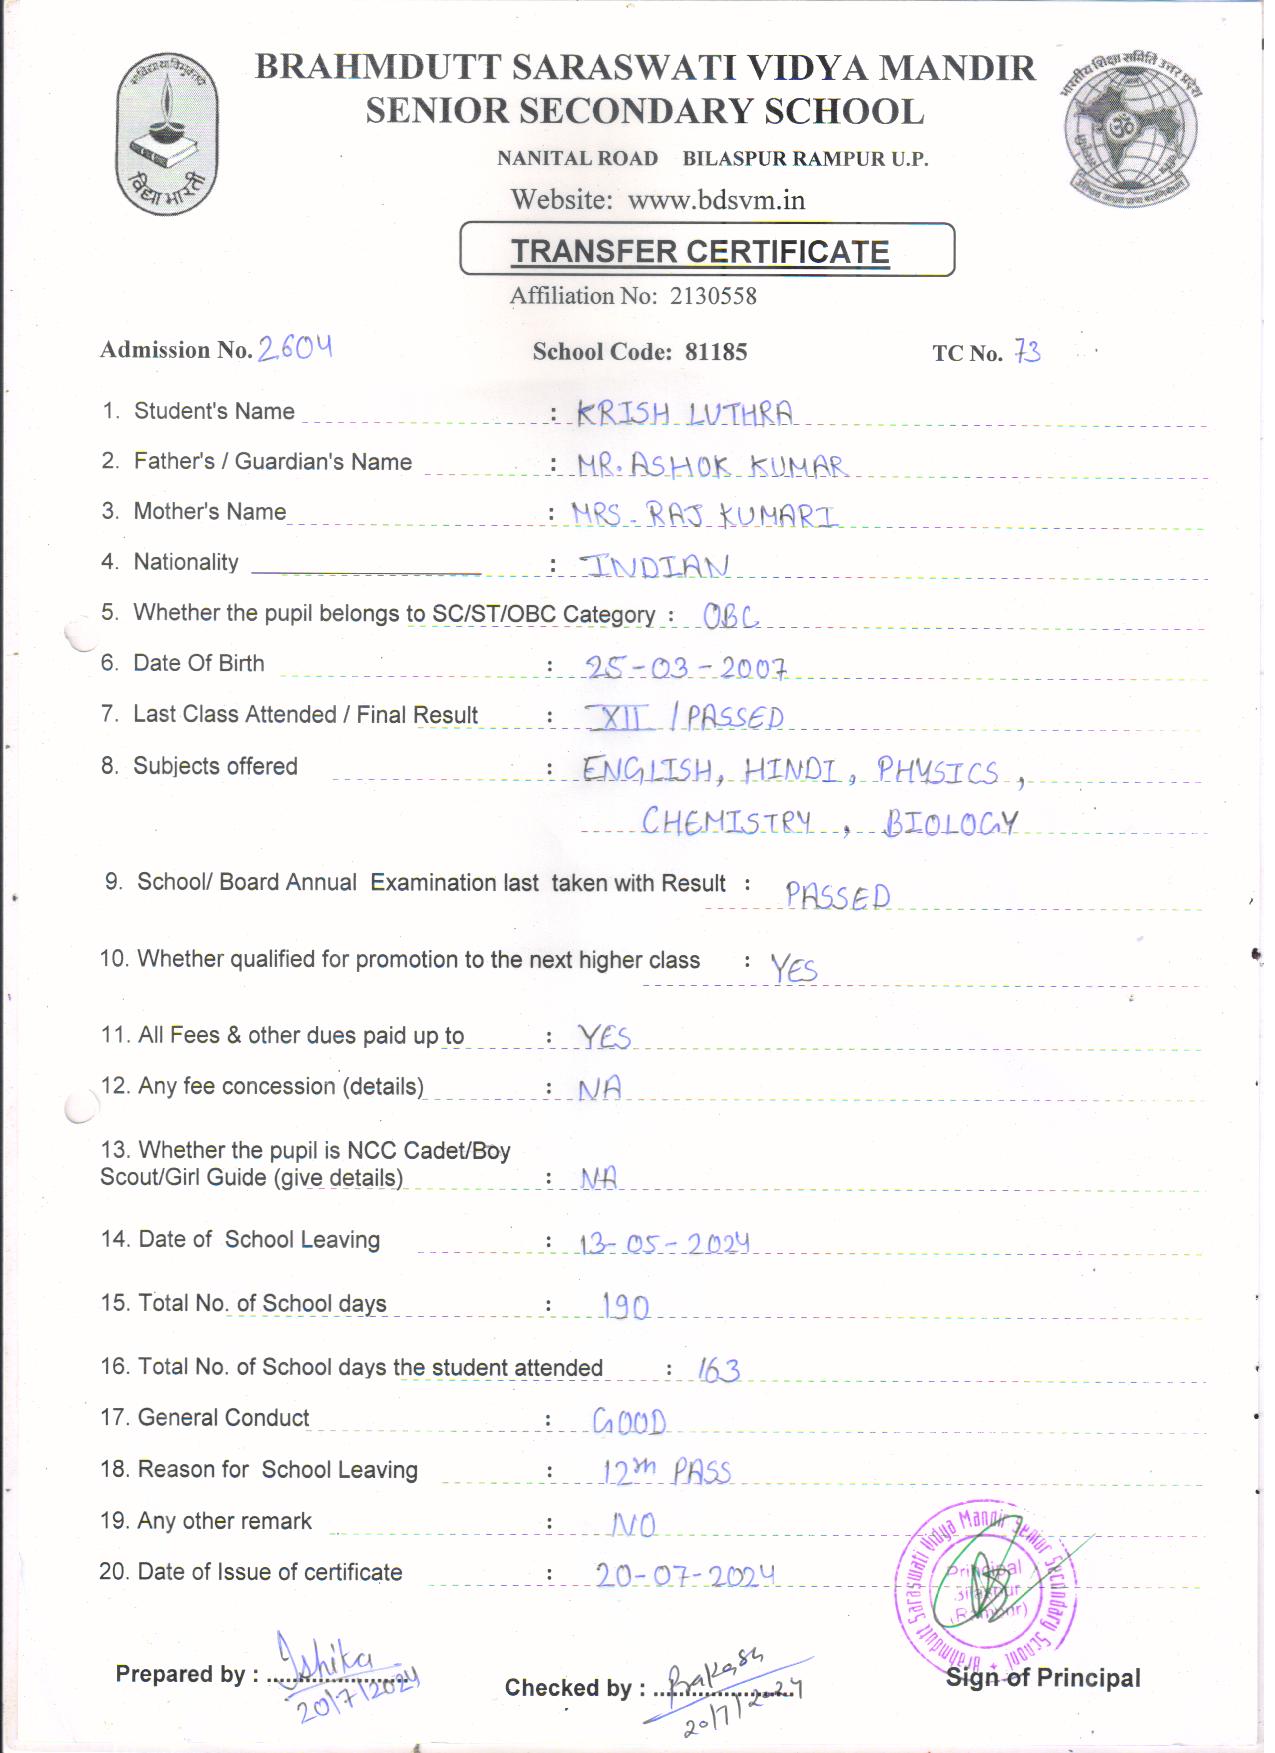 BRAHMDUTT SARASWATI VIDYA MANDIR
SENIOR SECONDARY SCHOOL
NANITAL ROAD BILASPUR RAMPUR U.P.
Website: www.bdsvm.in
विद्या भारती
भारतीय शिक्षा समिति उत्तर प्रदेश
TRANSFER CERTIFICATE
Affiliation No: 2130558
Admission No. 2604 School Code: 81185 TC No. 73
1. Student's Name : KRISH LUTHRA
2. Father's / Guardian's Name : MR. ASHOK KUMAR
3. Mother's Name : MRS. RAJ KUMARI
4. Nationality : INDIAN
5. Whether the pupil belongs to SC/ST/OBC Category : OBC
6. Date Of Birth : 25-03-2007
7. Last Class Attended / Final Result : XII / PASSED
8. Subjects offered : ENGLISH, HINDI, PHYSICS,
CHEMISTRY, BIOLOGY
9. School/ Board Annual Examination last taken with Result : PASSED
10. Whether qualified for promotion to the next higher class : YES
11. All Fees & other dues paid up to : YES
12. Any fee concession (details) : NA
13. Whether the pupil is NCC Cadet/Boy
Scout/Girl Guide (give details) : NA
14. Date of School Leaving : 13-05-2024
15. Total No. of School days : 190
16. Total No. of School days the student attended : 163
17. General Conduct : GOOD
18. Reason for School Leaving : 12th PASS
19. Any other remark : NO
20. Date of Issue of certificate : 20-07-2024
Brahmdutt Saraswati Vidya Mandir Senior Secondary School
Principal
Bilaspur
(Rampur)
Prepared by : Ishika
20/7/2024
Checked by : Prakash
20/7/2024
Sign of Principal